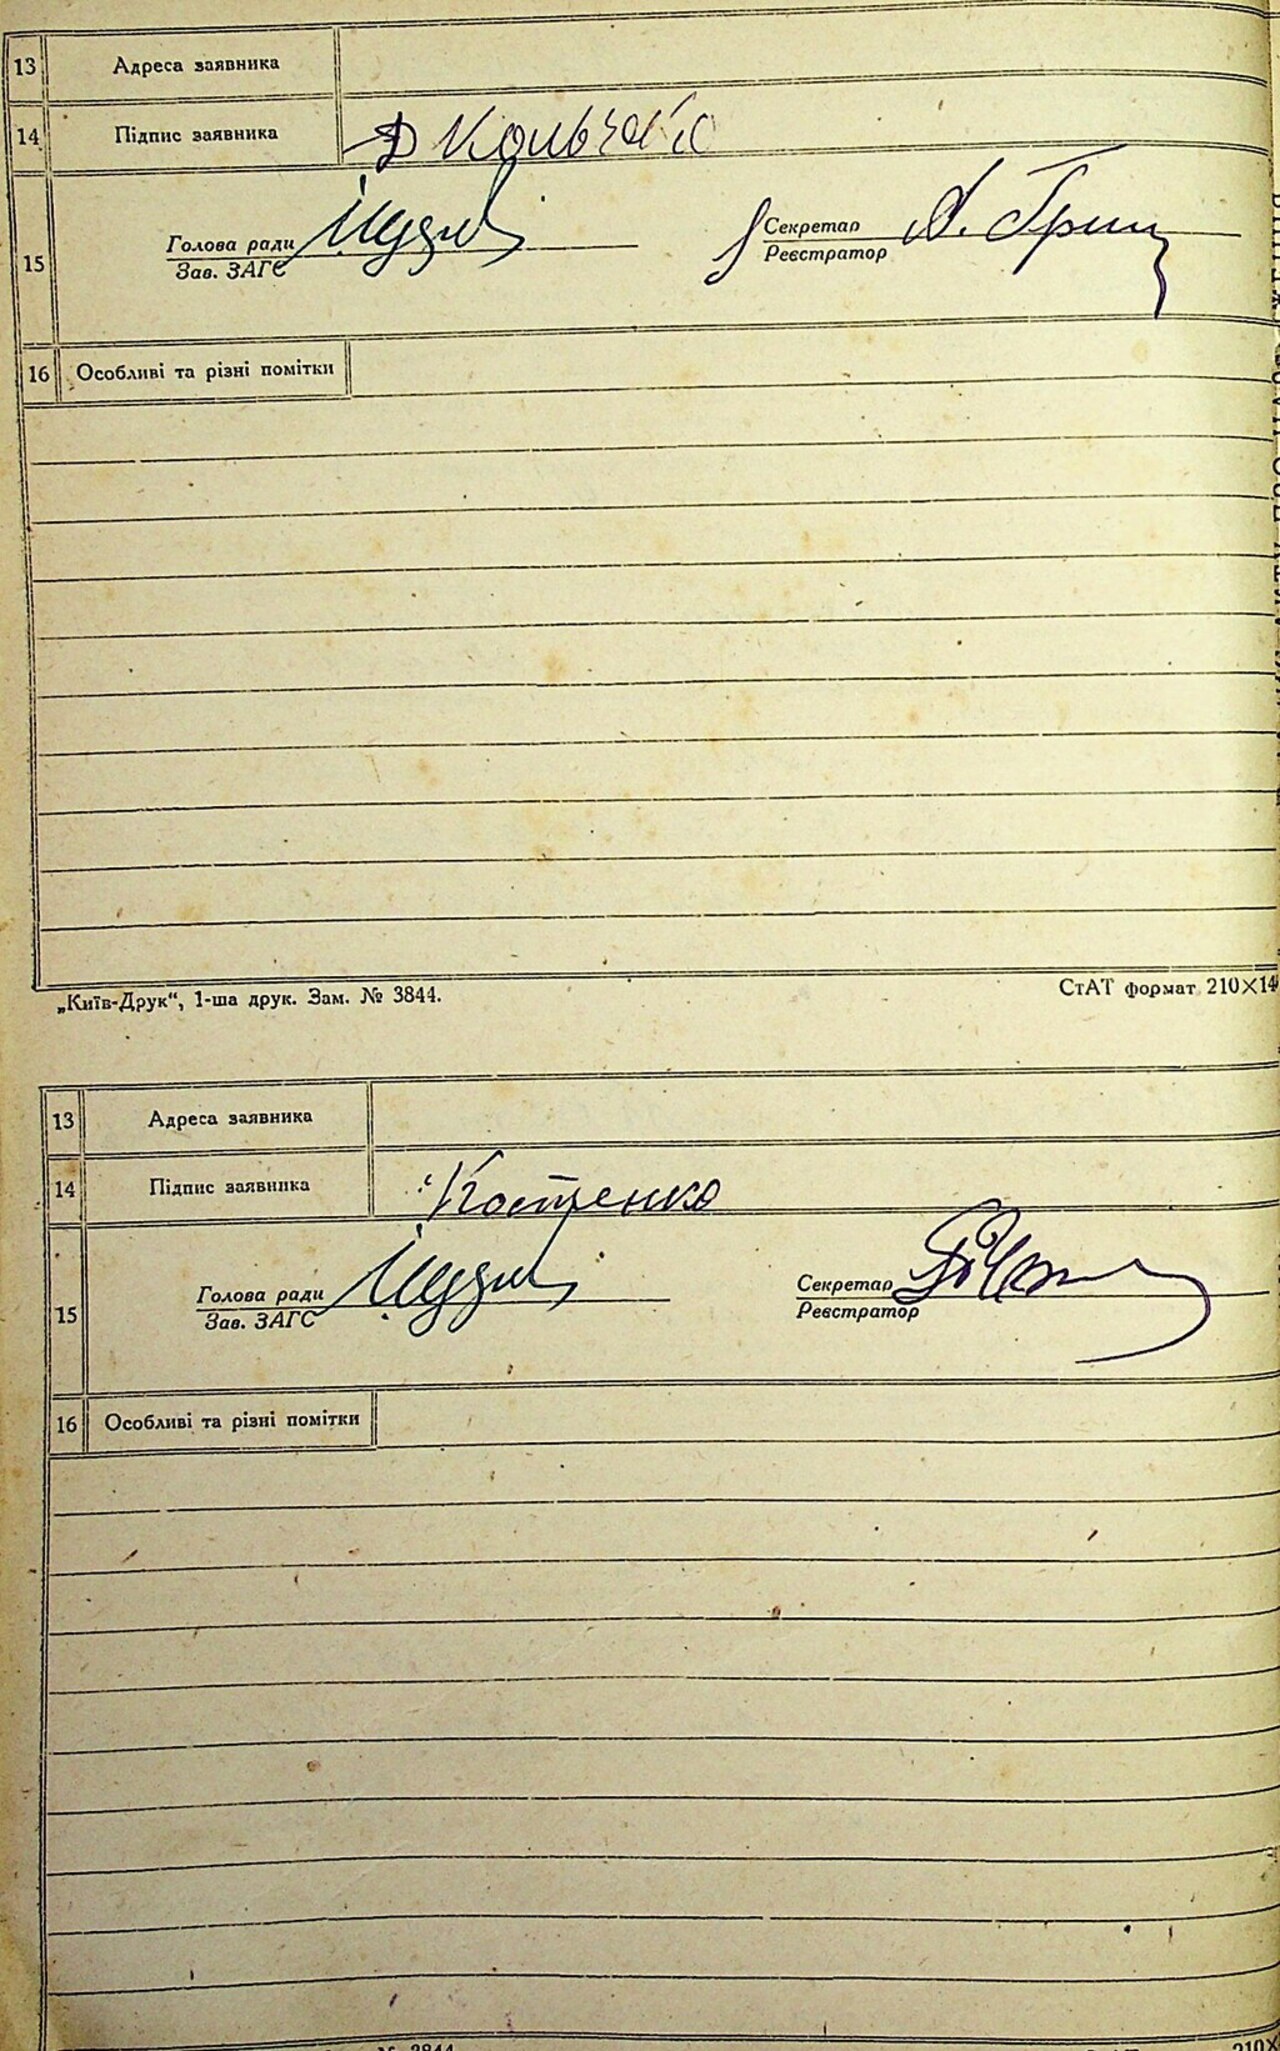 13 Адреса заявника
14 Підпис заявника
15 Голова ради Секретар А. Гриц
Зав. ЗАГС Реєстратор
16 Особливі та різні помітки
„Київ-Друк“, 1-ша друк. Зам. № 3844.
СтАТ формат 210×14
13 Адреса заявника
14 Підпис заявника Костенко
15 Голова ради Секретар
Зав. ЗАГС Реєстратор
16 Особливі та різні помітки
№ 3844
210×